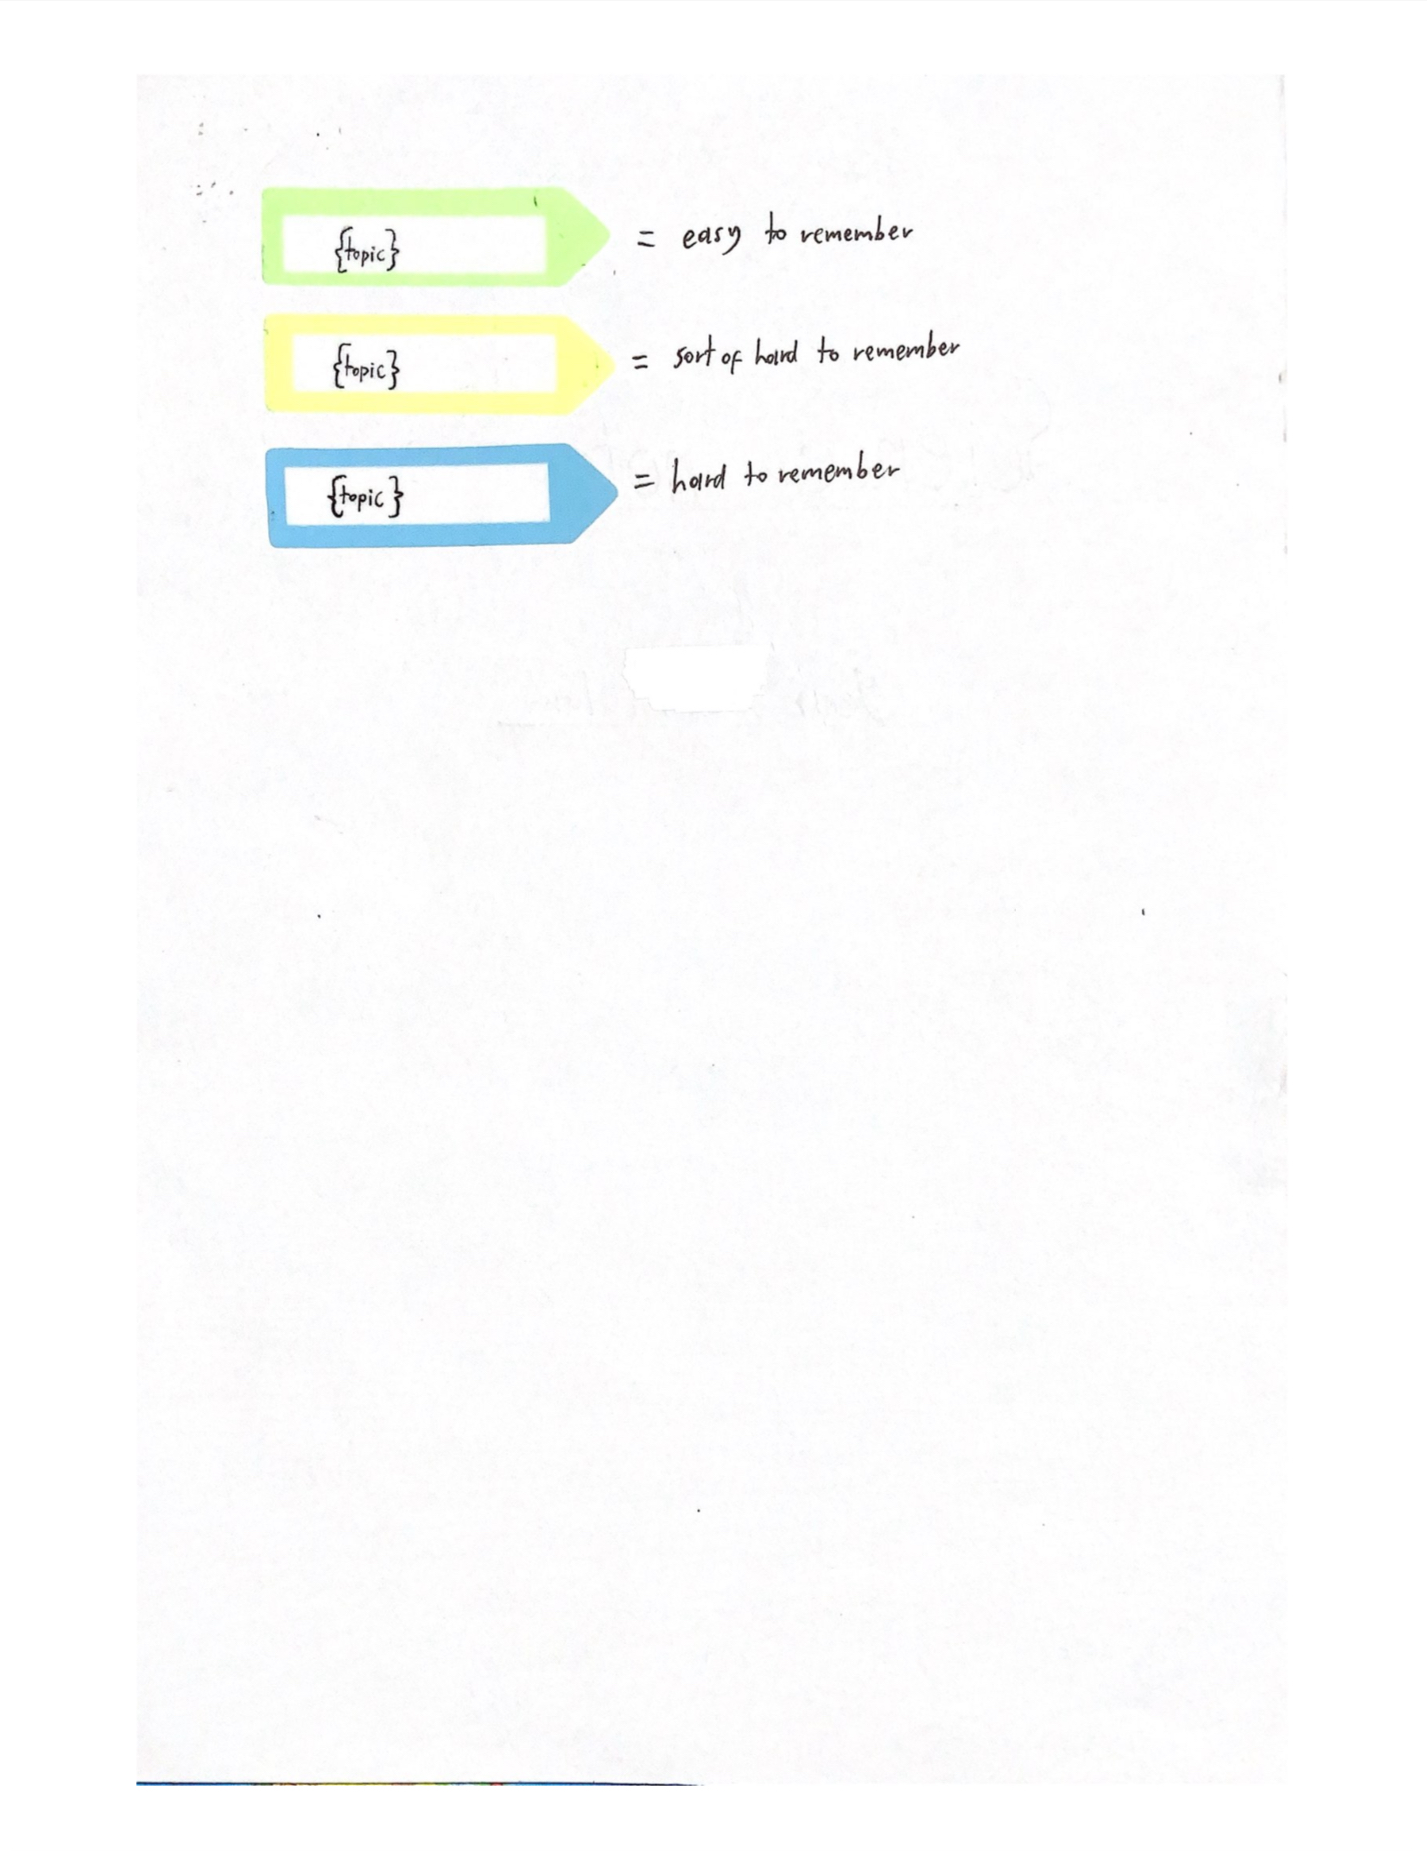 {topic} = easy to remember
{topic} = sort of hard to remember
{topic} = hard to remember